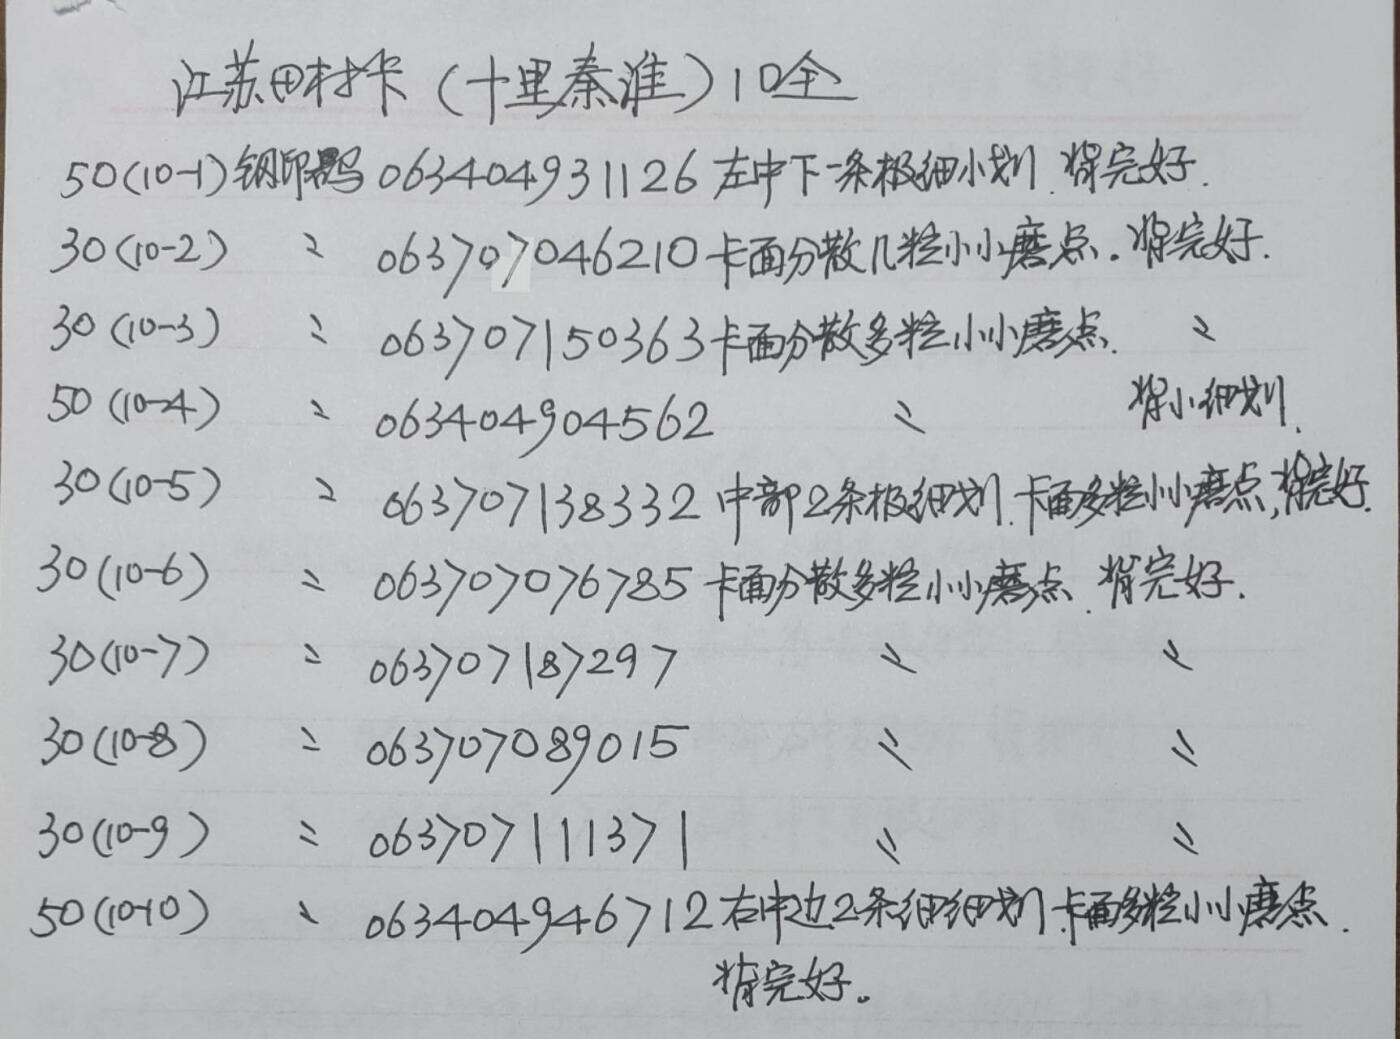 江苏田村卡（十里秦淮）10全
50(10-1) 钢印号 063404931126 左中下一条极细小划.背完好.
30(10-2) 〃 063707046210 卡面分散几粒小小磨点.背完好.
30(10-3) 〃 063707150363 卡面分散多粒小小磨点. 〃
50(10-4) 〃 063404904562 〃 背小细划.
30(10-5) 〃 063707138332 中部2条极细划.卡面多粒小小磨点,背完好.
30(10-6) 〃 063707076785 卡面分散多粒小小磨点.背完好.
30(10-7) 〃 063707187297 〃 〃
30(10-8) 〃 063707089015 〃 〃
30(10-9) 〃 063707111371 〃 〃
50(10-10) 〃 063404946712 右中边2条细细划.卡面多粒小小磨点.
背完好。